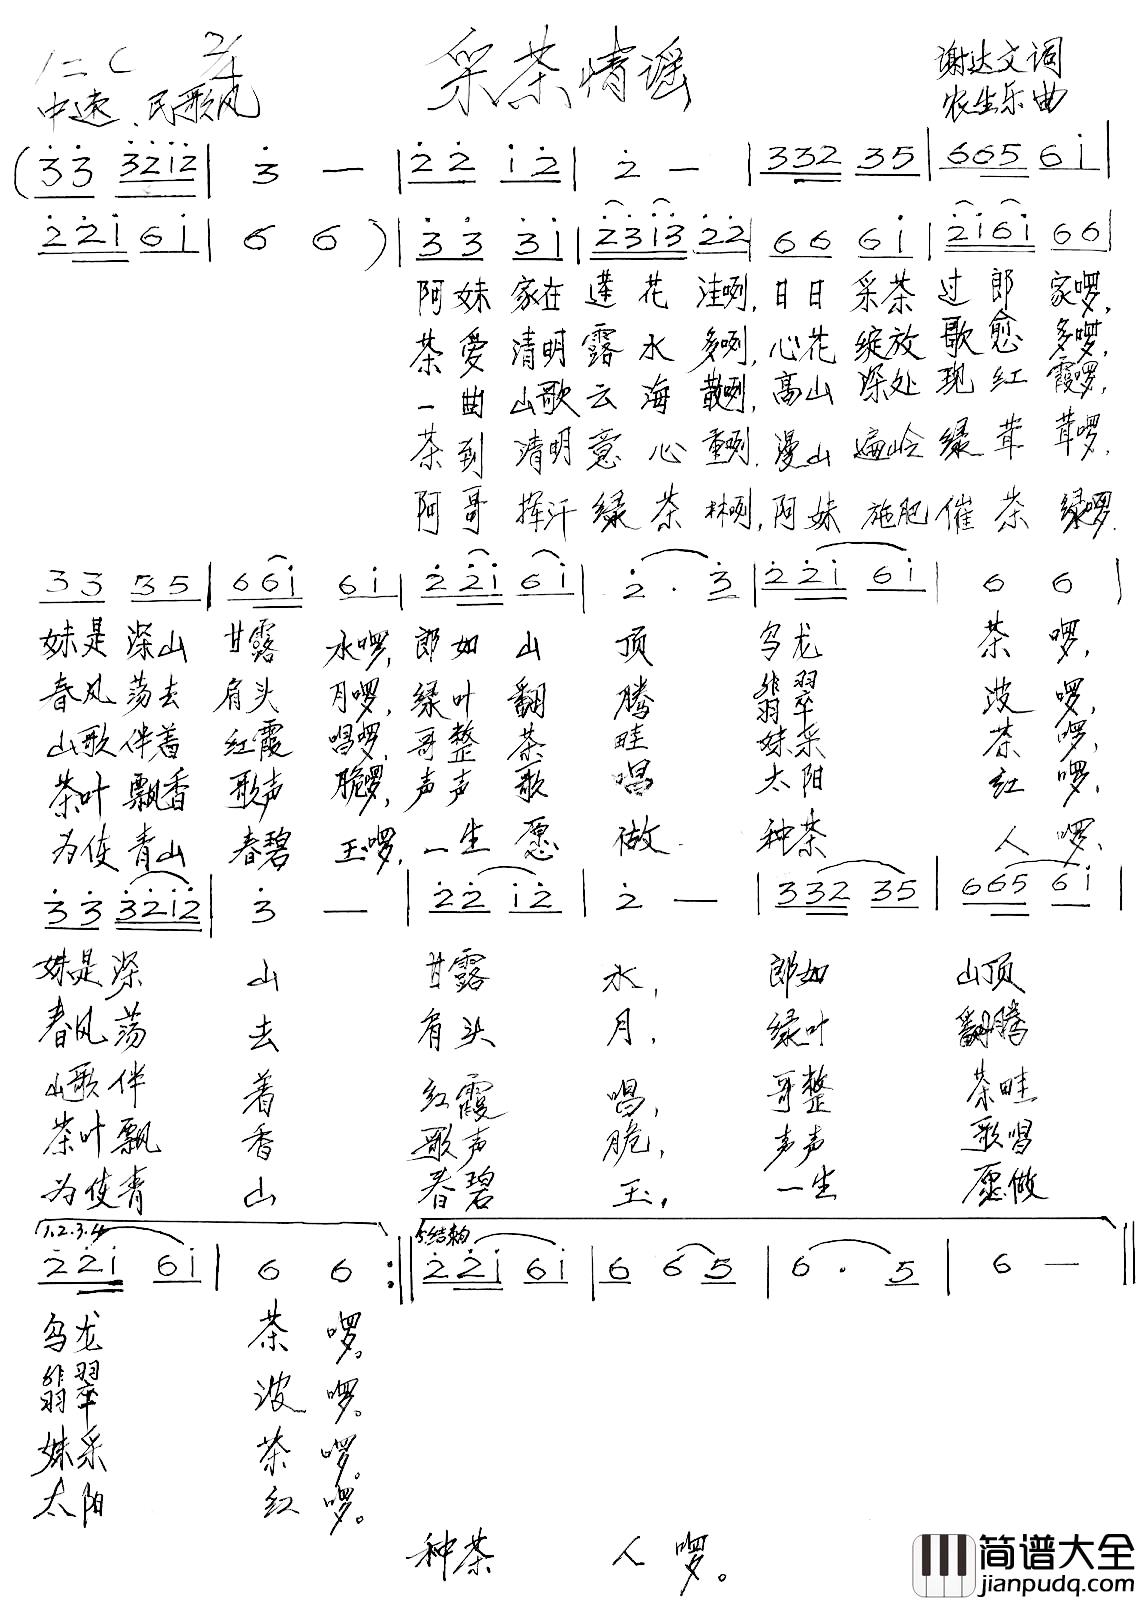 1=C 2/4 采茶情谣 谢达文词
中速、民歌风 农生乐曲
(33 3212 | 3 — | 22 12 | 2 — | 332 35 | 665 61 |
221 61 | 6 6 ) | 33 31 | 2313 22 | 66 61 | 2161 66 |
阿妹家在莲花洼咧,日日采茶过郎家啰,
茶爱清明露水多咧,心花绽放歌愈多啰,
一曲山歌云海散咧,高山深处现红霞啰,
茶到清明意心重咧,漫山遍岭绿茸茸啰,
阿哥挥汗绿茶林咧,阿妹施肥催茶绿啰.
33 35 | 661 61 | 221 61 | 2 · 3 | 221 61 | 6 6 |
妹是深山甘露水啰,郎如山顶乌龙茶啰,
春风荡去肩头月啰,绿叶翻腾翡翠波啰,
山歌伴着红霞唱啰,哥整茶畦妹采茶啰,
茶叶飘香歌声脆啰,声声歌唱太阳红啰,
为使青山春碧玉啰,一生愿做种茶人啰.
33 3212 | 3 — | 22 12 | 2 — | 332 35 | 665 61 |
妹是深山甘露水,郎如山顶
春风荡去肩头月,绿叶翻腾
山歌伴着红霞唱,哥整茶畦
茶叶飘香歌声脆,声声歌唱
为使青山春碧玉,一生愿做
1.2.3.4 5.结束句
221 61 | 6 6 :‖ 221 61 | 6 65 | 6 · 5 | 6 — ‖
乌龙茶啰。
翡翠波啰。
妹采茶啰。
太阳红啰。
种茶人啰。
简谱大全
jianpudq.com